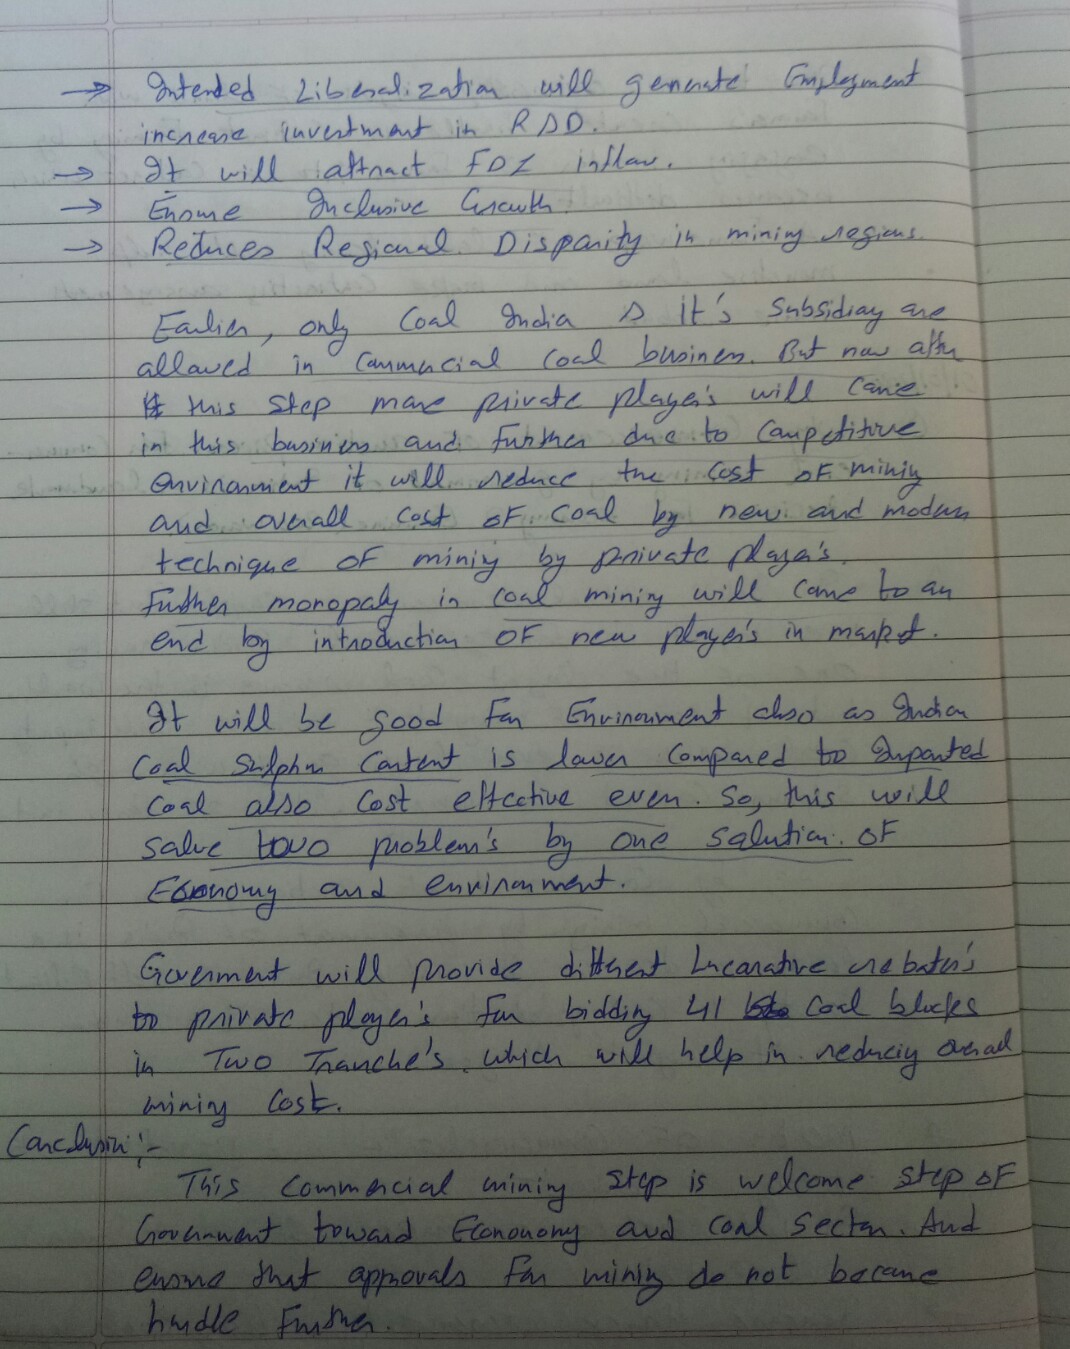 → Intended Liberalization will generate Employment
increase investment in R&D.
→ It will attract FDI inflow.
→ Ensure Inclusive Growth.
→ Reduces Regional Disparity in mining regions.
Earlier, only Coal India & it's Subsidiary are
allowed in commercial coal business. But now after
this step more private player's will come
in this business and further due to competitive
environment it will reduce the cost of mining
and overall cost of coal by new and modern
technique of mining by private player's.
further monopoly in coal mining will come to an
end by introduction of new player's in market.
It will be good for Environment also as Indian
Coal Sulphur Content is lower compared to Imported
Coal also cost effective even. So, this will
solve two problem's by one solution. of
Economy and environment.
Goverment will provide different rebates's
to private player's for bidding 41 coal blocks
in Two Tranche's. which will help in reducing overall
mining cost.
Conclusion :-
This commercial mining step is welcome step of
Government toward Econonomy and coal sector. And
ensure that approvals for mining do not become
hurdle further.